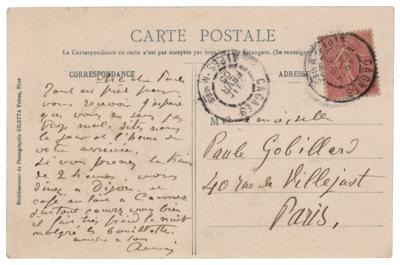 CARTE POSTALE
La Correspondance au recto n'est pas acceptée par tous les pays étrangers. (Se renseigner
CORRESPONDANCE
ADRESSE
Etablissement de Photographie GILETTA Frères, Nice
CAGNES
CAGNES
Ma chère Paule
Tout est prêt pour
vous recevoir j'espère
que vous ne serez pas
trop mal. dites nous
le jour et l'heure de
votre arrivée.
Si vous prenez le train
de 2 heures vous
dînez à Dijon, et
café au lait à Cannes
surtout couvrez vous bien
il fait très froid la nuit
malgré la bouillotte.
Mademoiselle
Paule Gobillard
40 rue de Villejust
Paris,